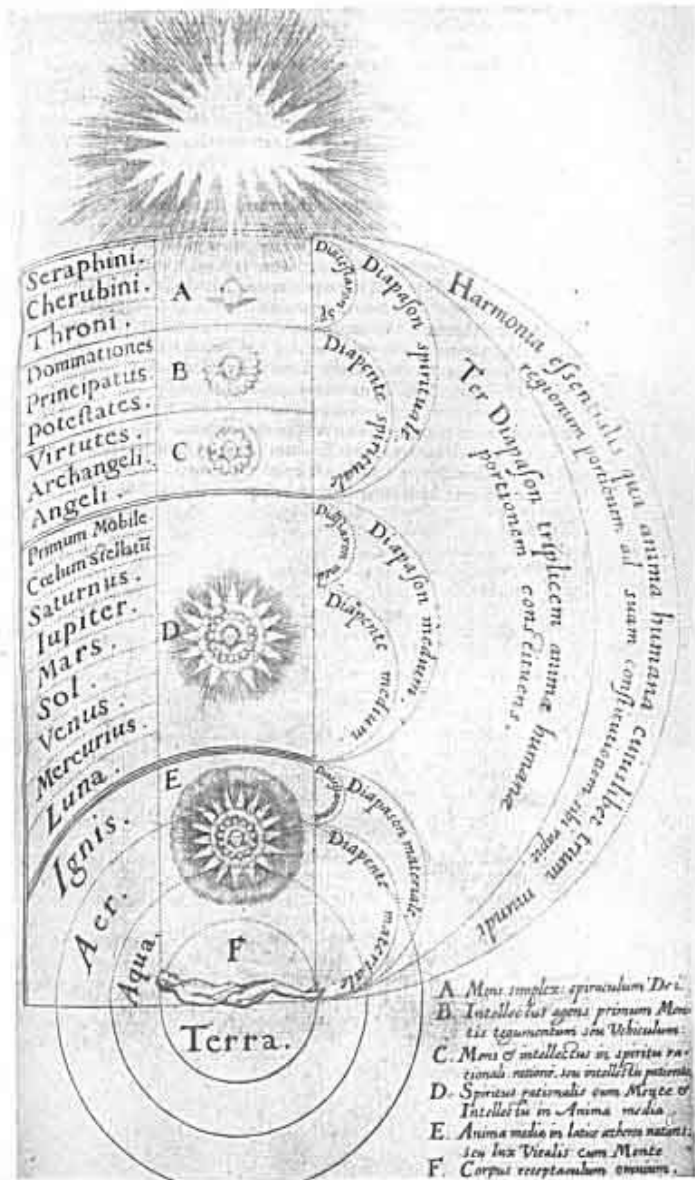 Seraphini.
Cherubini.
Throni.
Dominationes
Principatus
Potestates.
Virtutes.
Archangeli.
Angeli.
Primum Mobile
Cœlum stellatū
Saturnus.
Iupiter.
Mars.
Sol.
Venus.
Mercurius.
Luna.
Ignis.
Aer.
Aqua.
Terra.
A
B
C
D
E
F
Diatessaron sp
Diapason spirituale
Diapente spirituale
Diapason medium.
Diapente medium.
Diapason materiale
Diapente materiale
Ter Diapason triplicem animæ humanæ
portionem constituens.
Harmonia essentialis qua anima humana cuiuslibet trium
regionum portionem ad suam constitutionem sibi rapit
mundi
A Mens simplex: spiraculum Dei.
B. Intellectus agens primum Men-
tis tegumentum seu Vehiculum.
C. Mens & intellectus in spiritu ra-
tionali, seu intellectu
D. Spiritus rationalis cum Mente &
Intellectu in Anima media
E. Anima media in æthereo natans:
seu lux Vitalis cum Mente
F. Corpus receptaculum omnium.